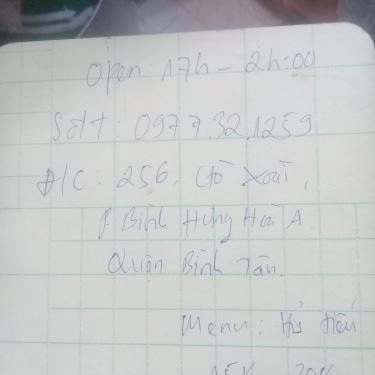 Open 17h - 2h:00
Sđt: 0977.32.1259
Đ/C: 256. Gò Xoài,
P Bình Hưng Hoà A
Quận Bình Tân.
Menu: Hủ tiếu
15K 20K